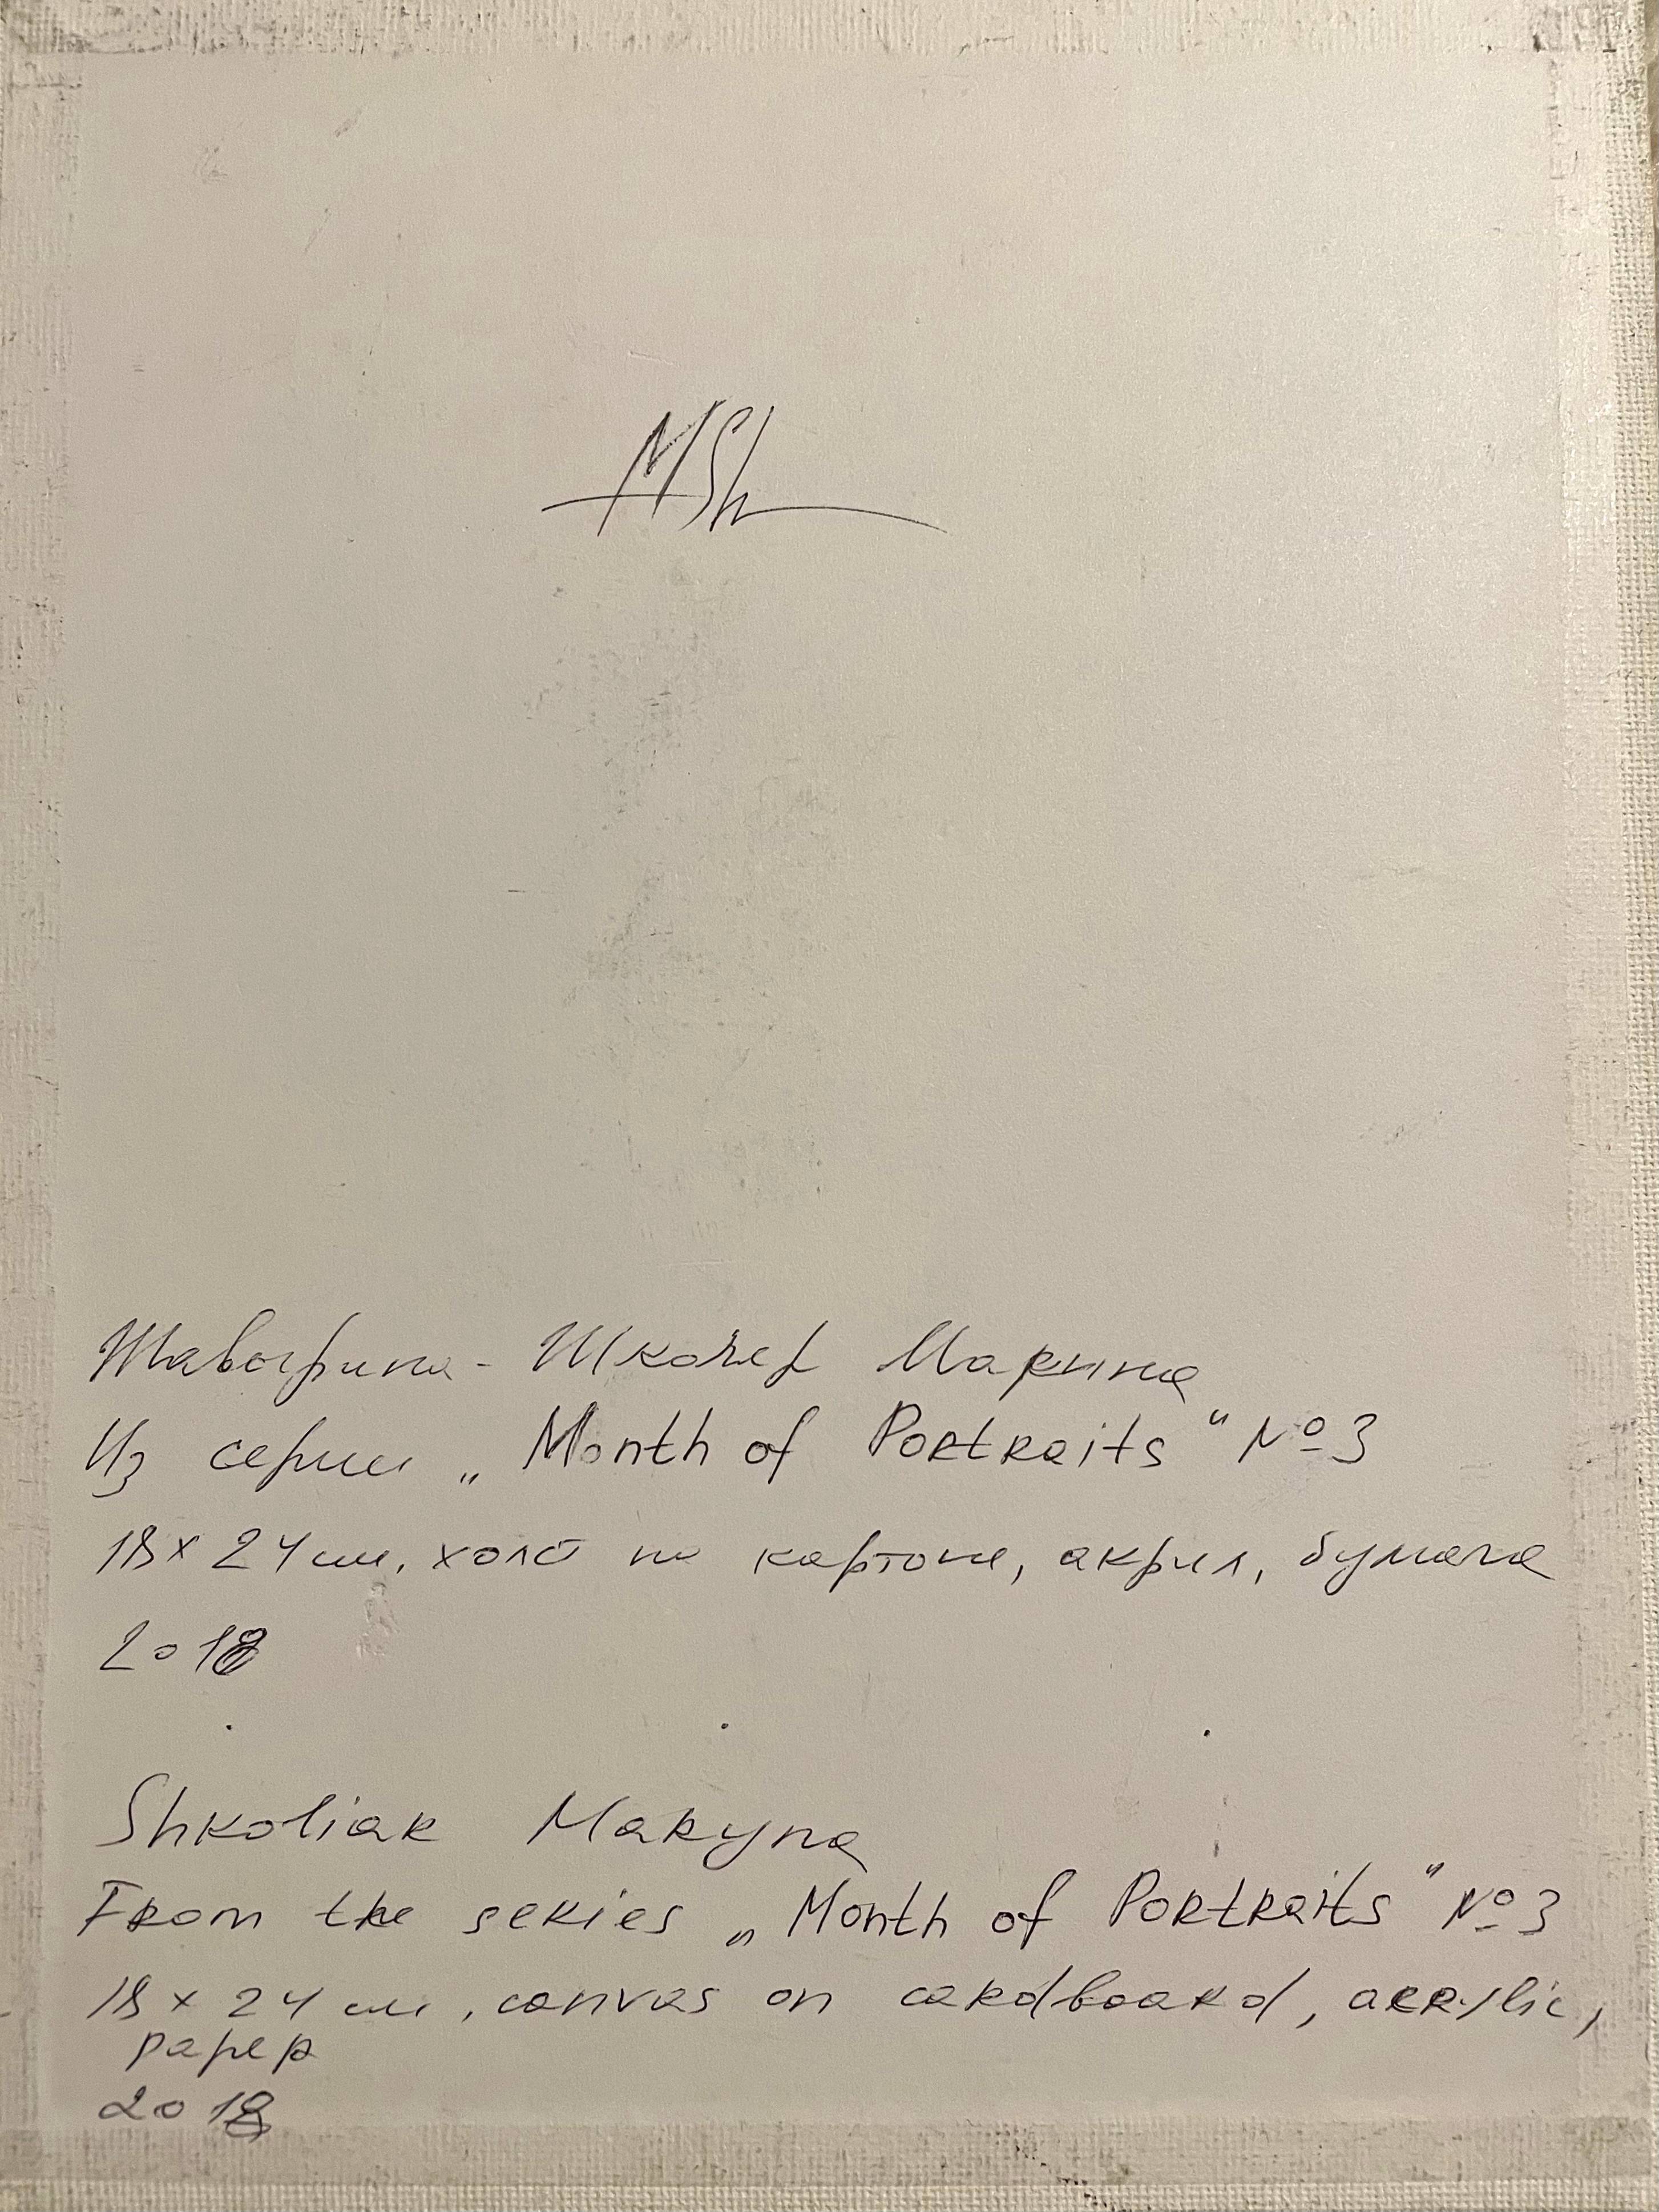 MSh
Марина
Из серии „Month of Portraits“ № 3
18 x 24 см, холст на картоне, акрил, бумага
2018
Shkoliar Maryna
From the series „Month of Portraits“ № 3
18 x 24 см, canvas on cardboard, acrylic,
paper
2018